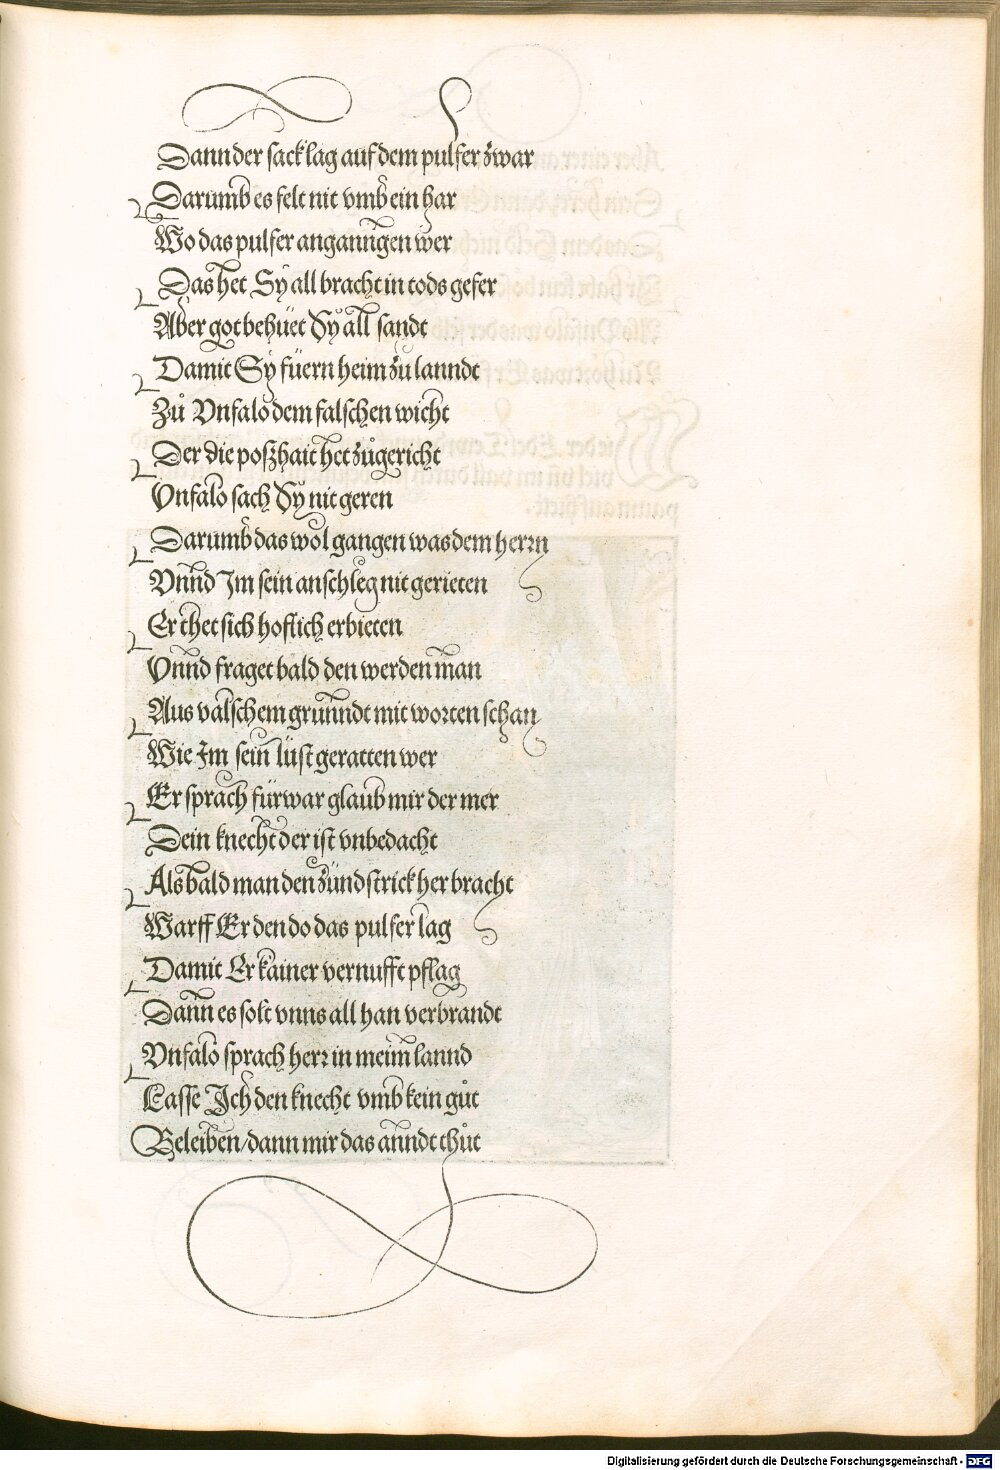 Dann der sack lag auf dem pulfer zwar
Darumb es felt nit vmb ein har
Wo das pulfer anganngen wer
Das het Sy all bracht in tods gefer
Aber got behüet Sy all sandt
Damit Sy füern heim zu lanndt
Zů Vnfalo dem falschen wicht
Der die poßhait het zůgericht
Vnfalo sach Sy nit geren
Darumb das wol gangen was dem herrn
Vnnd Im sein anschleg nit gerieten
Er thet sich hoflich erbieten
Vnnd fraget bald den werden man
Aus valschem grunndt mit worten schan
Wie Im sein lüst geratten wer
Er sprach fürwar glaub mir der mer
Dein knecht der ist vnbedacht
Als bald man den zündstrick her bracht
Warff Er den do das pulfer lag
Damit Er kainer vernufft pflag
Dann es solt vnns all han verbrandt
Vnfalo sprach herr in meim lannd
Lasse Ich den knecht vmb kein gůt
Beleiben/dann mir das anndt thůt
Digitalisierung gefördert durch die Deutsche Forschungsgemeinschaft - DFG